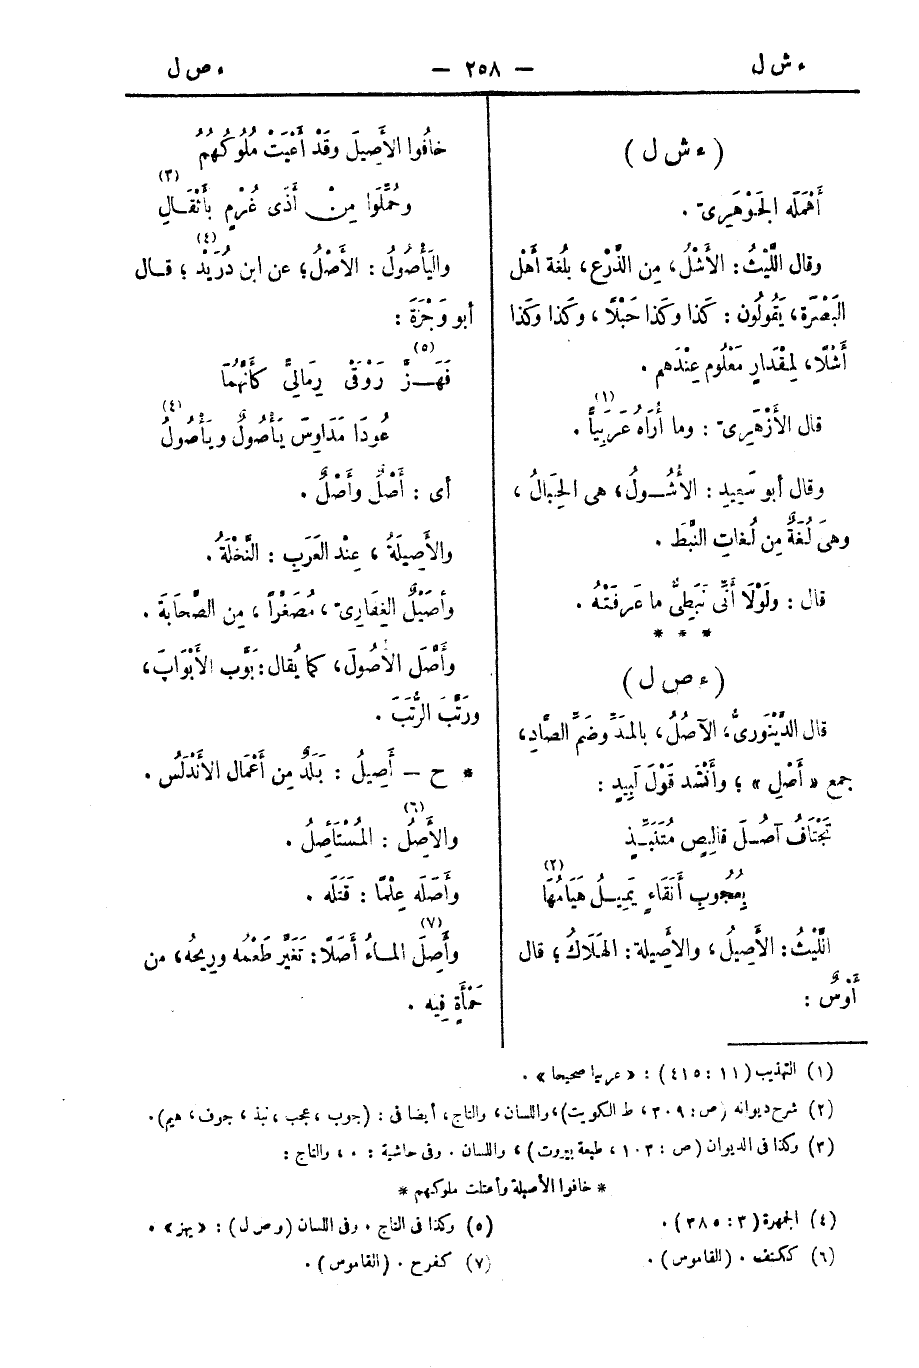 ء ش ل
— ٢٥٨ —
ء ص ل
( ء ش ل )
أَهْمَلَه الجَوْهَرِىّ .
وقال اللَّيْثُ : الأَشْلُ ، مِن الذَّرْع ، بلُغة أهْل
البَصْرَة ، يَقُولُون : كَذا وكَذا حَبْلًا ، وكَذا وكَذا
أَشْلًا ، لِمِقْدارٍ مَعْلُوم عِنْدَهم .
قال الأَزْهَرِىّ : وما أُرَاهُ عَرَبِيًّا (١) .
وقال أبو سَعِيدٍ : الأُشُولُ ، هى الحِبَالُ ،
وهىَ لُغَةٌ مِن لُغاتِ النَّبَطِ .
قال : ولَوْلَا أَنِّى نَبَطِىٌّ ما عَرَفْتُهُ .
* * *
( ء ص ل )
قال الدِّيْنَورِىُّ ، الآصُلُ ، بالمَدِّ وضَمِّ الصَّادِ ،
جمع « أَصْلٍ » ؛ وأَنْشَد قَوْلَ لَبِيدٍ :
تَجْتَافُ آصُلَ قالِصٍ مُتَنَبِّذٍ
بِعُجُوبِ أَنْقَاءٍ يَمِيلُ هَيَامُهَا (٢)
اللَّيْثُ : الأَصِيلُ ، والأَصِيلة : الهَلَاكُ ؛ قال
أَوْسٌ :
خافُوا الأَصِيلَ وقَدْ أَعْيَتْ مُلُوكُهُمُ
وحُمِّلُوا مِنْ أَذَى غُرْمٍ بأَثْقَالِ (٣)
واليَأْصُولُ : الأَصْلُ ؛ عن ابن دُرَيْد (٤) ؛ قال
أبو وَجْزَةَ :
فَهَزَّ رَوْقَىْ رِمَالِىٍّ كَأَنَّهُمَا (٥)
عُودَا مَدَاوِسَ يَأْصُولٌ ويَأْصُولُ (٤)
أى : أَصْلٌ وأَصْلٌ .
والأَصِيلَةُ ، عِنْد العَرَبِ : النَّخْلَةُ .
وأُصَيْلٌ الغِفَارِىّ ، مُصَغَّراً ، مِن الصَّحَابَة .
وأَصَّلَ الأُصُولَ ، كما يُقال : بَوَّب الأَبْوَابَ ،
ورَتَّبَ الرُّتَبَ .
* ح – أَصِيلُ : بَلَدٌ مِن أَعْمَال الأَنْدَلُس .
والأَصِلُ (٦) : المُسْتَأْصِلُ .
وأَصَلَه عِلْمًا : قَتَلَه .
وأَصِلَ (٧) المَاءُ أَصَلًا : تَغَيَّر طَعْمُه ورِيحُه ، من
حَمْأَةٍ فِيه .
(١) التهذيب (١١ : ٤١٥) : « عربيا صحيحا » .
(٢) شرح ديوانه (ص : ٣٠٩ ، ط الكويت) ، واللسان ، والتاج ، أيضا فى : (جوب ، عجب ، نبذ ، جوف ، هيم) .
(٣) وكذا فى الديوان (ص : ١٠٣ ، طبعة بيروت) ، واللسان . وفى حاشية : ء ، والتاج :
* خافوا الأصيلة واعتلت ملوكهم *
(٤) الجمهرة (٣ : ٣٨٥) .
(٥) وكذا فى التاج . وفى اللسان (وصل) : « يهز » .
(٦) ككتف . (القاموس) .
(٧) كفرح . (القاموس) .